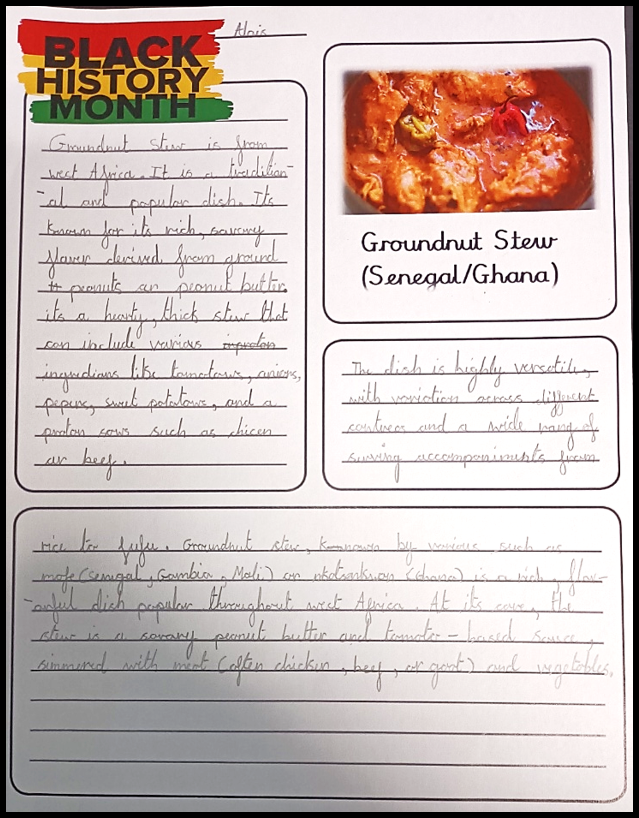 Alois
BLACK
HISTORY
MONTH
Groundnut stew is from
west Africa. It is a tradition-
-al and popular dish. Its
known for its rich, savory
flavor derived from ground
peanuts or peanut butter.
its a hearty, thick stew that
can include various
ingredians like tomatows, onions,
pepers, sweet potatows, and a
proton sows such as chicen
or beef.
Groundnut Stew
(Senegal/Ghana)
The dish is highly versatile,
with variation across different
contrees and a wide rang of
serving accompaniments from
rice to fufu. Groundnut stew, known by various, such as
mafe (Senegal, Gambia, Mali) or nkatenkwan (Ghana) is a rich, flav-
-orful dish popular throughout west Africa. At its core, the
stew is a savory peanut butter and tomato-based sauce,
simmered with meat (often chicken, beef, or goat) and vegetables.